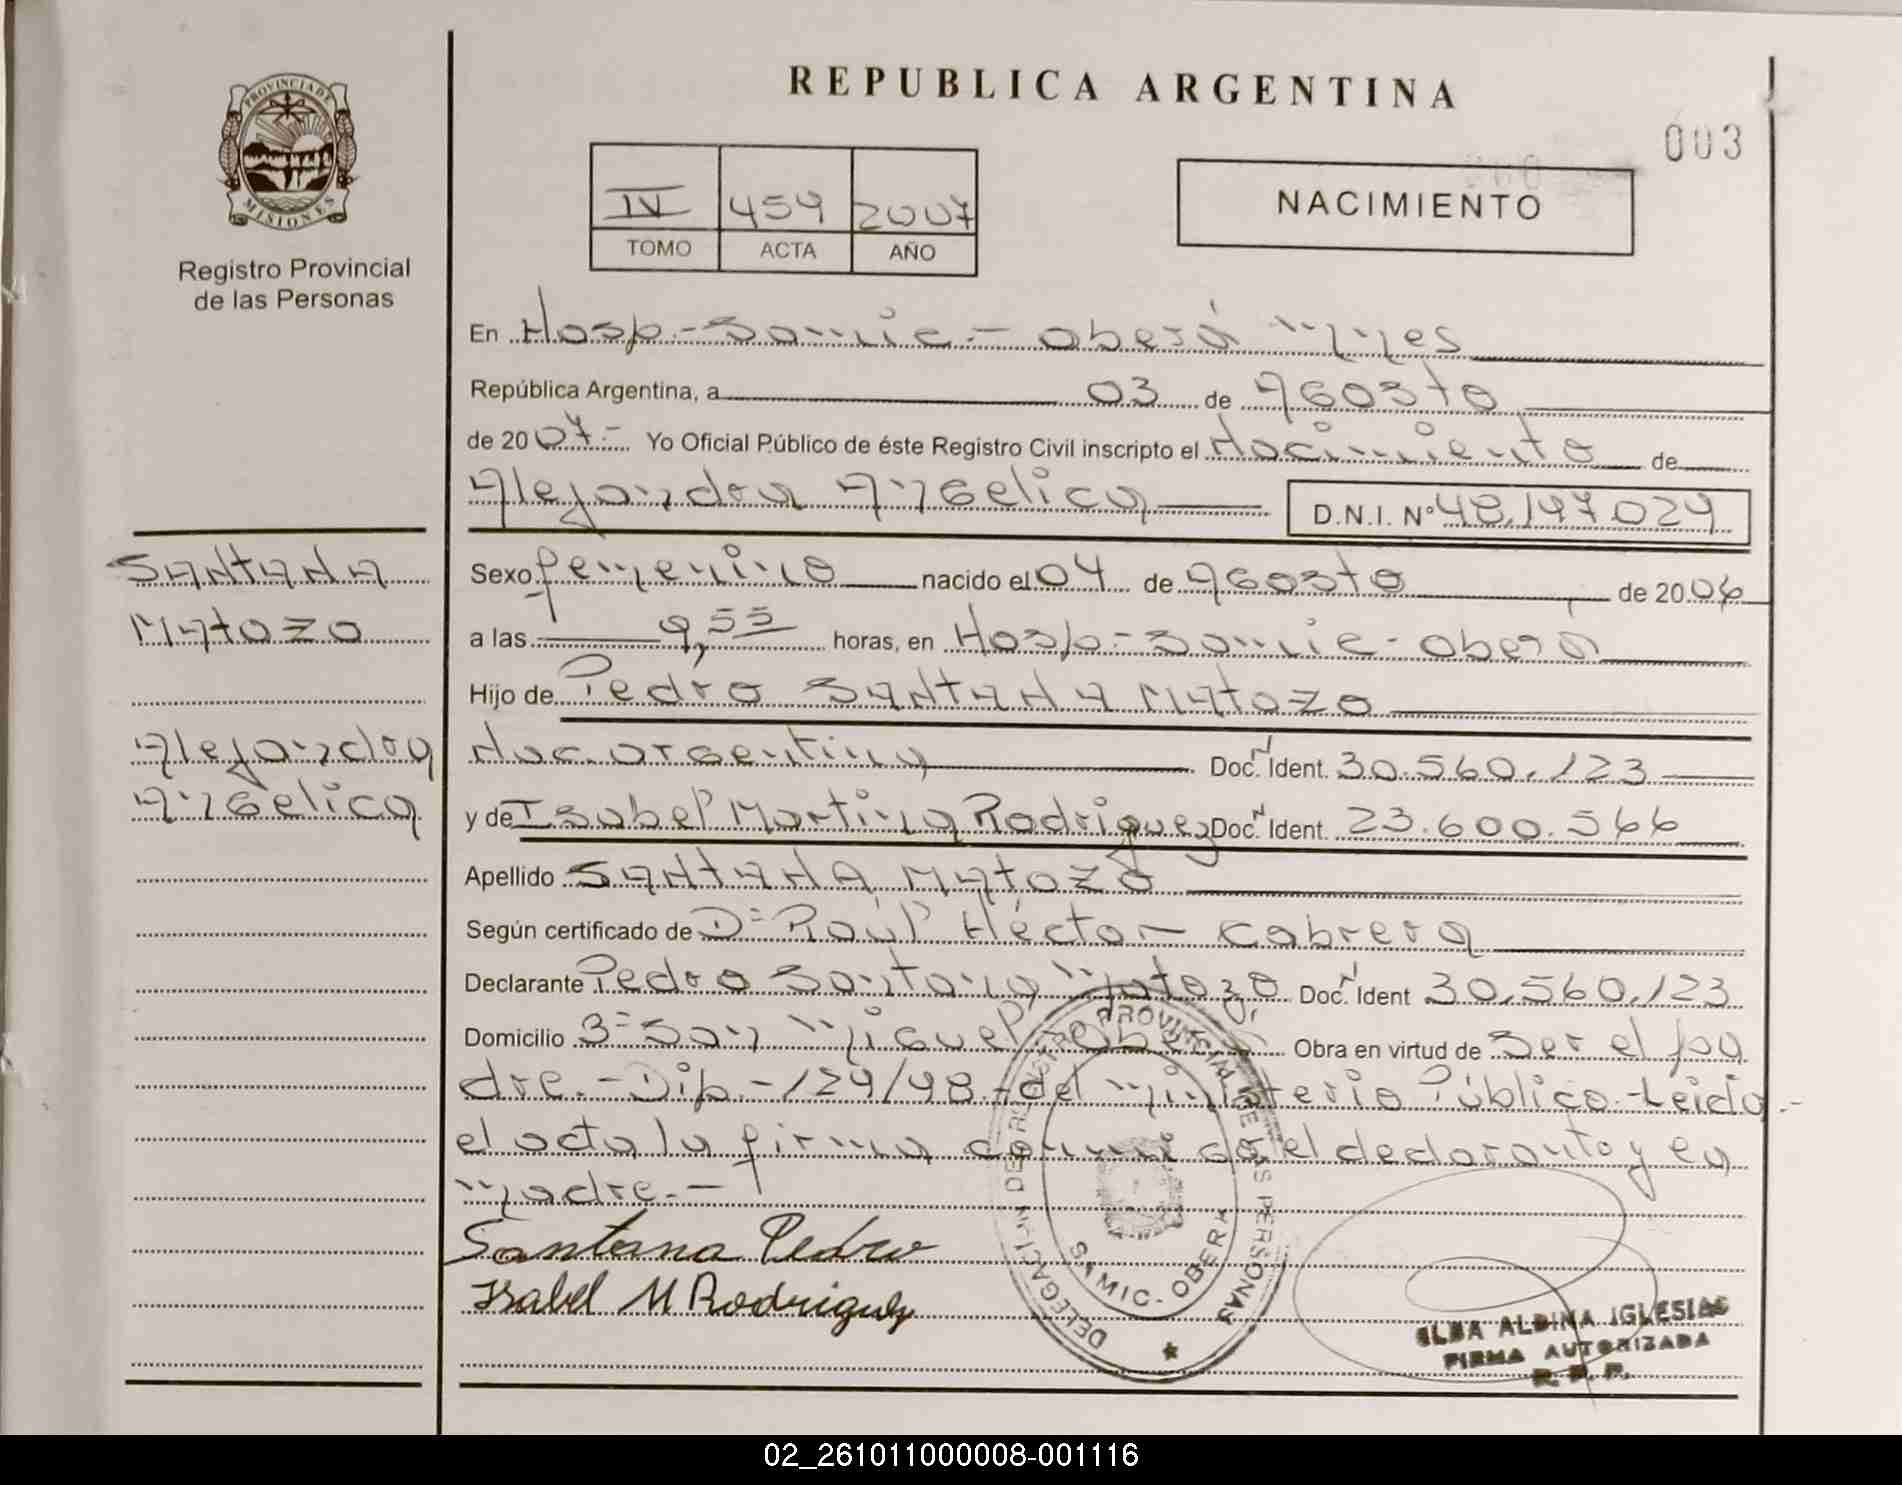 PROVINCIA DE
MISIONES
Registro Provincial
de las Personas
REPUBLICA ARGENTINA
003
IV 459 2007
TOMO ACTA AÑO
NACIMIENTO
En Hosp.-Samic.- Oberá Mnes
República Argentina, a 03 de Agosto
de 2007.- Yo Oficial Público de éste Registro Civil inscripto el Nacimiento de
Alejandra Angelica D.N.I. Nº 48.147.029
SANTANA
MATOZO
Alejandra
Angelica
Sexo femenino nacido el 04 de Agosto de 2006
a las 9,55 horas, en Hosp.-Samic- Oberá
Hijo de Pedro SANTANA MATOZO
Nac. argentina Doc. N Ident. 30.560.123
y de Isabel Martina Rodriguez Doc. N Ident. 23.600.566
Apellido SANTANA MATOZO
Según certificado de Dr Raúl Héctor Cabrera
Declarante Pedro Santana Matozo Doc. N Ident 30.560.123
Domicilio Bº San Miguel Oberá Obra en virtud de Ser el pa
dre.-Dip.-129/98.-del Ministerio Público.-Leida.-
el acta la firma conmigo el declarante y la
madre.-
Santana Pedro
Isabel M Rodriguez
DELEGACION DEL REGISTRO PROVINCIAL DE LAS PERSONAS
SAMIC - OBERA
ELBA ALDINA IGLESIAS
FIRMA AUTORIZADA
R. P. P.
02_261011000008-001116